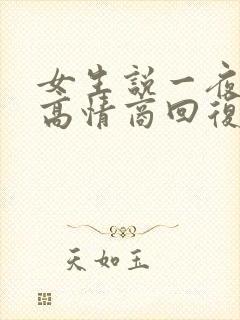 女生說一夜
高情商回復
天如玉